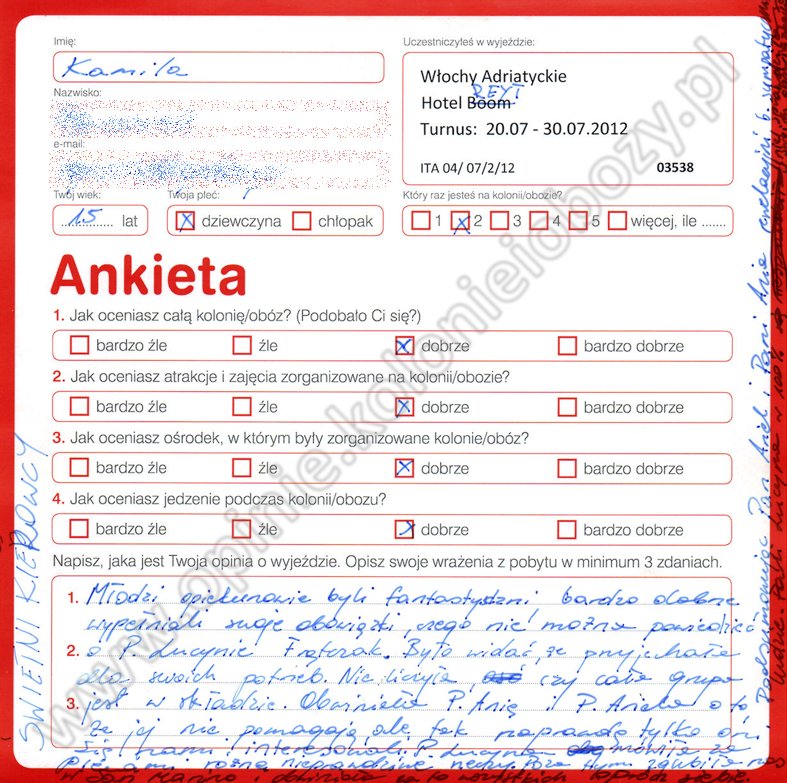 Imię:
Kamila
Nazwisko:
e-mail:
Twój wiek:
15 lat
Twoja płeć:
dziewczyna chłopak
Uczestniczyłeś w wyjeździe:
Włochy Adriatyckie
REYT
Hotel Boom
Turnus: 20.07 - 30.07.2012
ITA 04/ 07/2/12 03538
Który raz jesteś na kolonii/obozie?
1 2 3 4 5 więcej, ile .......
Ankieta
1. Jak oceniasz całą kolonię/obóz? (Podobało Ci się?)
bardzo źle źle dobrze bardzo dobrze
2. Jak oceniasz atrakcje i zajęcia zorganizowane na kolonii/obozie?
bardzo źle źle dobrze bardzo dobrze
3. Jak oceniasz ośrodek, w którym były zorganizowane kolonie/obóz?
bardzo źle źle dobrze bardzo dobrze
4. Jak oceniasz jedzenie podczas kolonii/obozu?
bardzo źle źle dobrze bardzo dobrze
Napisz, jaka jest Twoja opinia o wyjeździe. Opisz swoje wrażenia z pobytu w minimum 3 zdaniach.
1. Młodzi opiekunowie byli fantastyczni, bardzo dobrze
wypełniali swoje obowiązki, czego nie można powiedzieć
2. o P. Lucynie Frątczak. Było widać, że przyjechała
dla swoich potrzeb. Nie liczyła, czy cała grupa
3. jest w składzie. Obwiniała P. Anię i P. Arka o to
że jej nie pomagają, ale tak naprawdę tylko oni
się nami interesowali. P. Lucyna mówiła że
nieprawdziwe Poza tym zgubiła nas
w San Marino i
ŚWIETNI KIEROWCY
Podsumowując Pan Arek i Pani Ania rewelacyjni b. sympatyczni
ludzie. Pani Lucyna w 100%
www.opinie.kolonieiobozy.pl